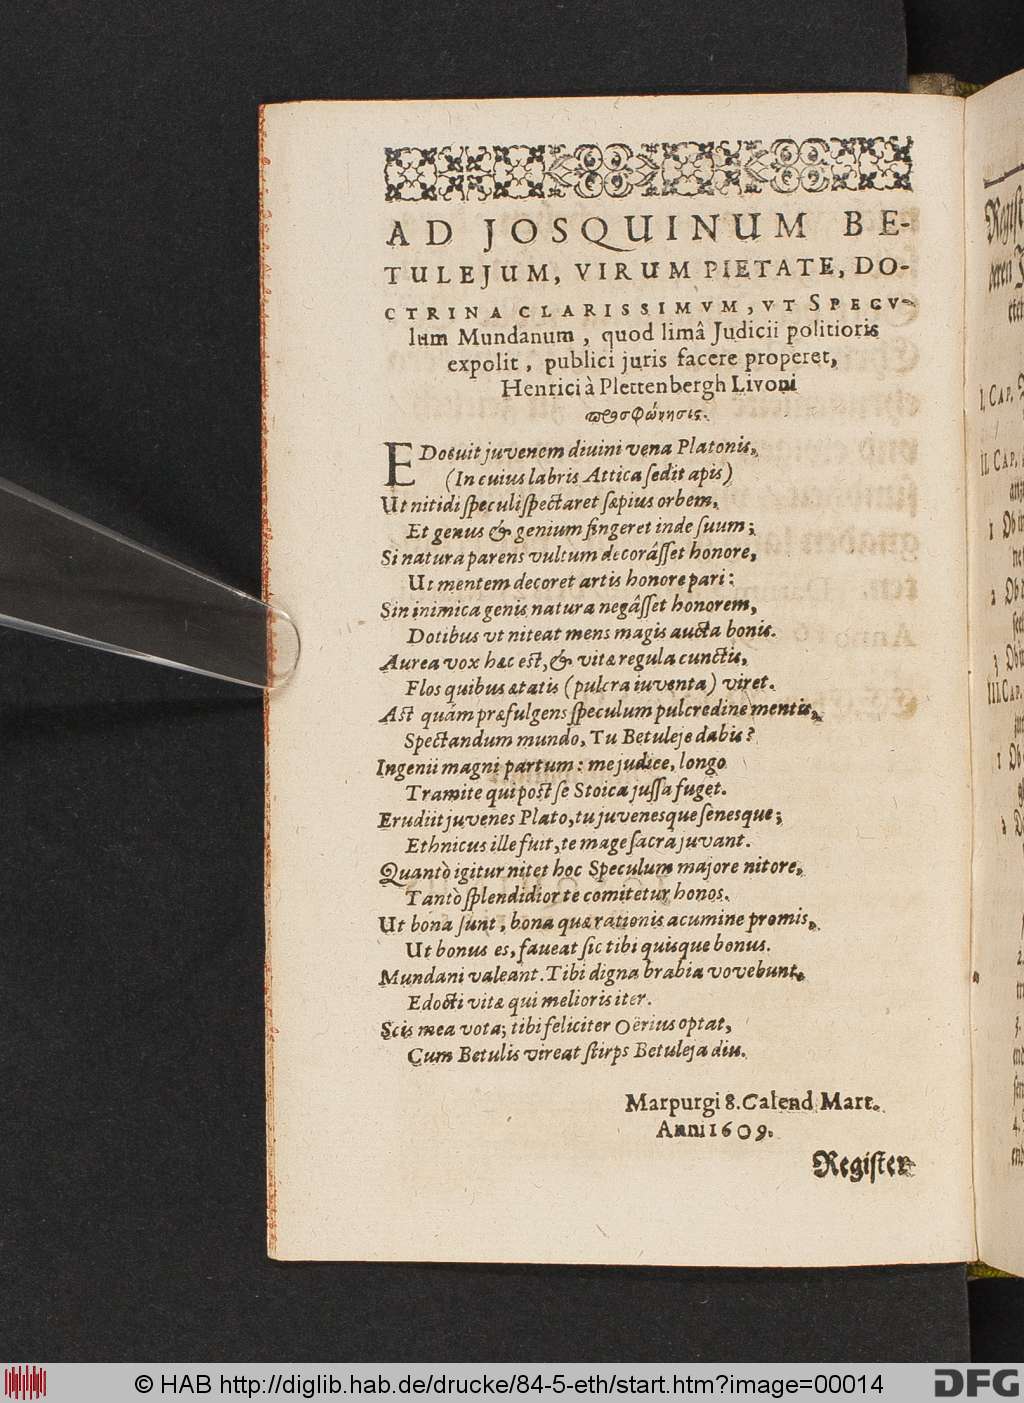 AD JOSQUINUM BE-
TULEJUM, VIRUM PIETATE, DO-
CTRINA CLARISSIMVM, VT SPECV-
lum Mundanum, quod limâ Judicii politioris
expolit, publici juris facere properet,
Henrici à Plettenbergh Livoni
προσφώνησις.
EDocuit juvenem divini vena Platonis,
(In cuius labris Attica sedit apis)
Ut nitidi speculi spectaret sæpius orbem,
Et genus & genium fingeret inde suum;
Si natura parens vultum decorâsset honore,
Ut mentem decoret artis honore pari:
Sin inimica genis natura negâsset honorem,
Dotibus ut niteat mens magis aucta bonis.
Aurea vox hæc est, & vitæ regula cunctis,
Flos quibus ætatis (pulcra iuventa) viret.
Ast quám præfulgens speculum pulcredine mentis,
Spectandum mundo, Tu Betuleje dabis?
Ingenii magni partum: me judice, longo
Tramite qui post se Stoica jussa fuget.
Erudiit juvenes Plato, tu juvenesque senesque;
Ethnicus ille fuit, te mage sacra juvant.
Quantò igitur nitet hoc Speculum majore nitore,
Tantò splendidior te comitetur honos.
Ut bona sunt, bona quæ rationis acumine promis,
Ut bonus es, faveat sic tibi quisque bonus.
Mundani valeant. Tibi digna brabia vovebunt,
Edocti vitæ qui melioris iter.
Scis mea vota; tibi feliciter Oërius optat,
Cum Betulis vireat stirps Betuleja diu.
Marpurgi 8. Calend Mart.
Anni 1609.
Register
Regist
I. CAP.
II. CAP.
III. CAP.
© HAB http://diglib.hab.de/drucke/84-5-eth/start.htm?image=00014
DFG